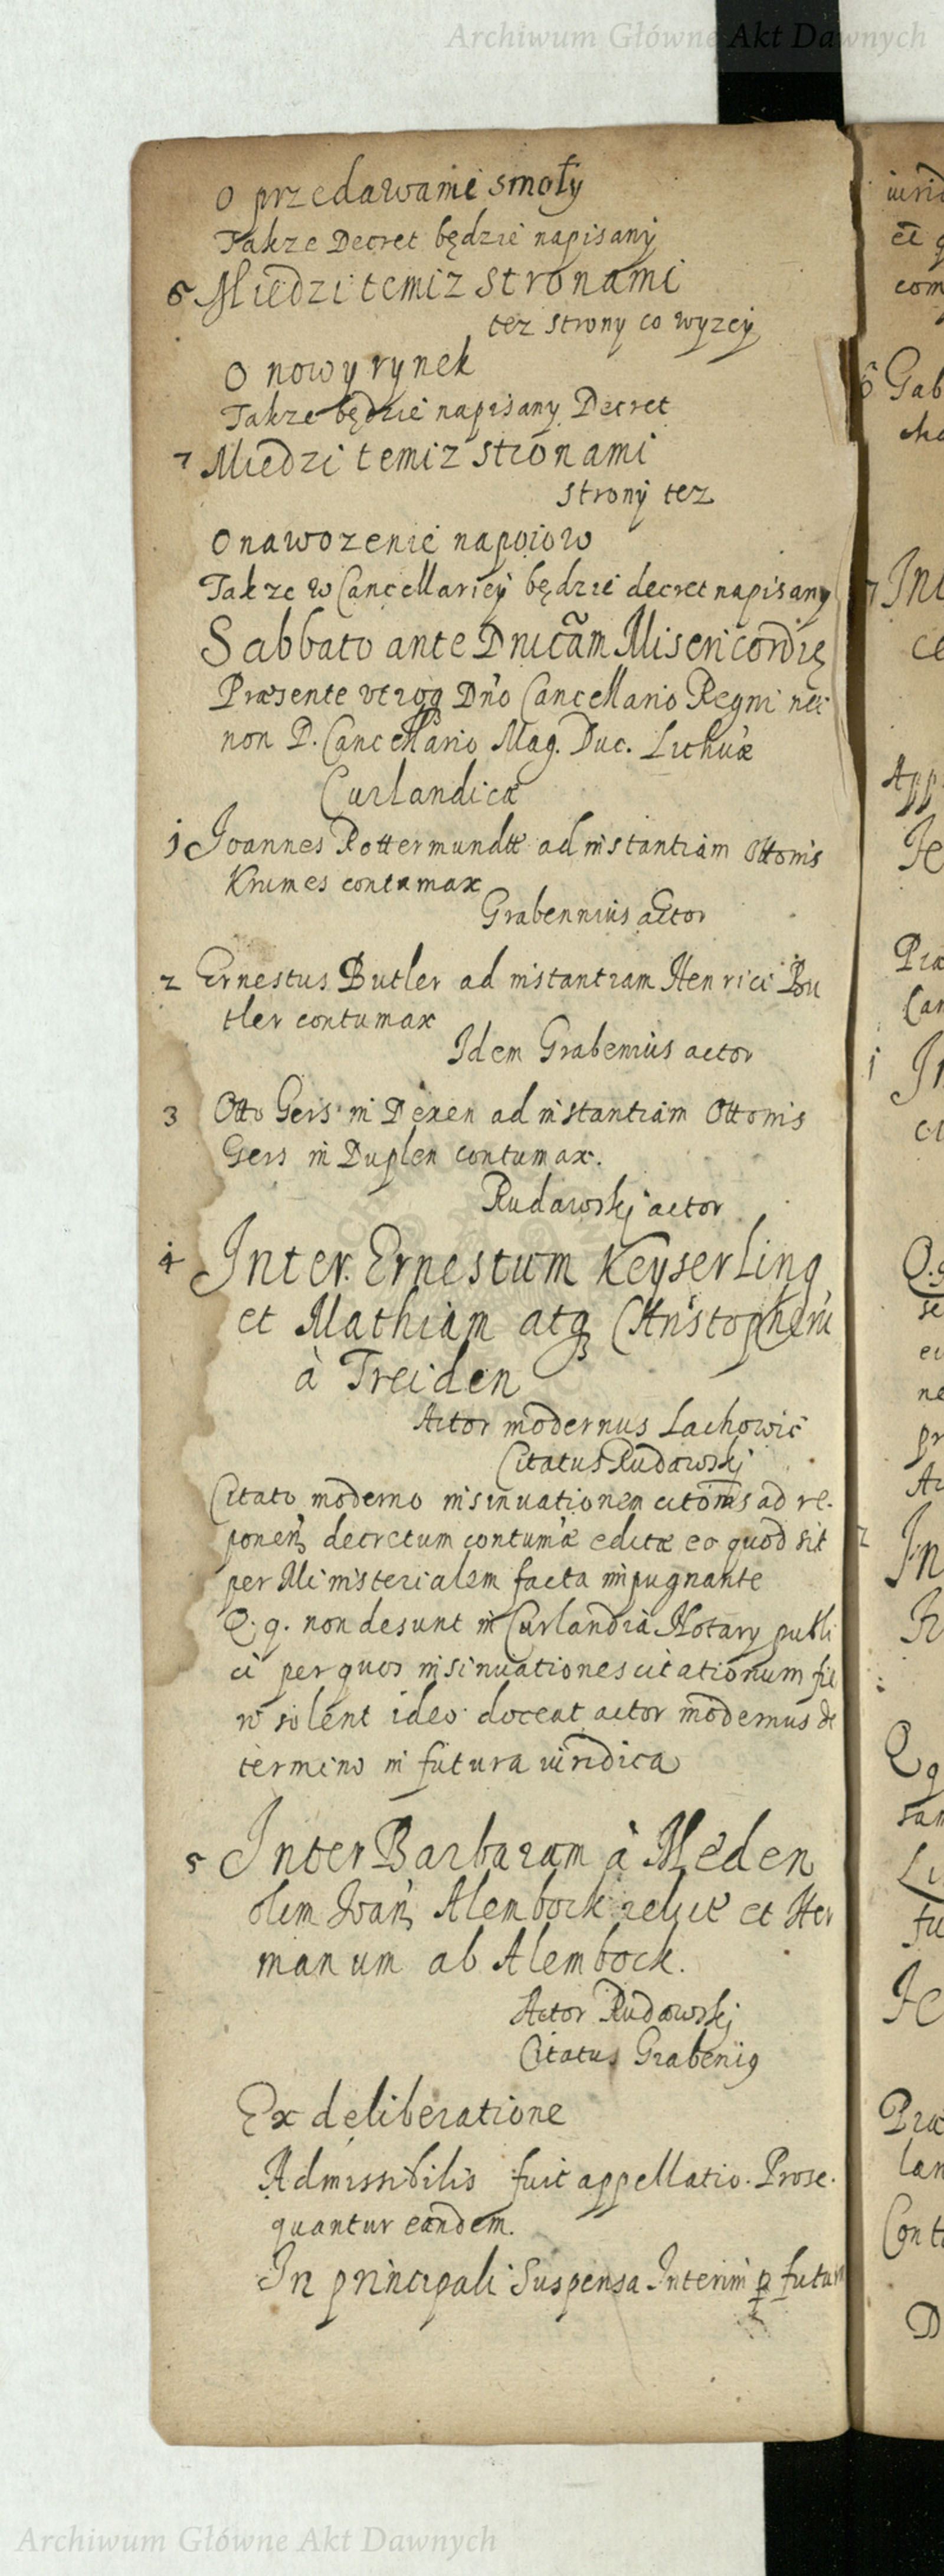 Archiwum Główne Akt Dawnych
O przedawanie smoły
Takze Decret będzie napisany
6 Miedzi temiz stronami
tez strony co wyzey
O nowy rynek
Takze będzie napisany Decret
7 Miedzi temiz stronami
strony tez
O nawozenie napoiow
Takze w Cancellariey będzie decret napisany
Sabbato ante Dnicãm Misericordię
Præsente utroq Dno Cancellario Regni nec
non D. Cancellario Mag. Duc. Lithuæ
Curlandicæ
1 Joannes Rottermundtt ad instantiam Ottonis
Krumes contumax
Grabennius actor
2 Ernestus Butler ad instantiam Henrici Bu
tler contumax
Idem Grabenius actor
3 Otto Gers in Dexen ad instantiam Ottonis
Gers in Duplen contumax.
Rudawskj actor
4 Inter Ernestum Keyserling
et Mathiam atq Christopherũ
à Treiden
Actor modernus Lachowic
Citatus Rudawskj
Citato moderno insinuationem citõnis ad re-
ponen decretum contumæ editæ eo quod sit
per Ministerialem facta impugnante
Q. q. non desunt in Curlandia Notary publi
ci per quos insinuationes citationum fie
ri solent ideo doceat actor modernus de
termino in futura iuridica
5 Inter Barbaram à Meden
olim Joan Alembock relictẽ et Her
manum ab Alembock.
Actor Rudawskj
Citatus Grabenig
Ex deliberatione
Admissibilis fuit appellatio. Prose-
quantur eandem.
In principali Suspensa Interim p futur
Archiwum Główne Akt Dawnych